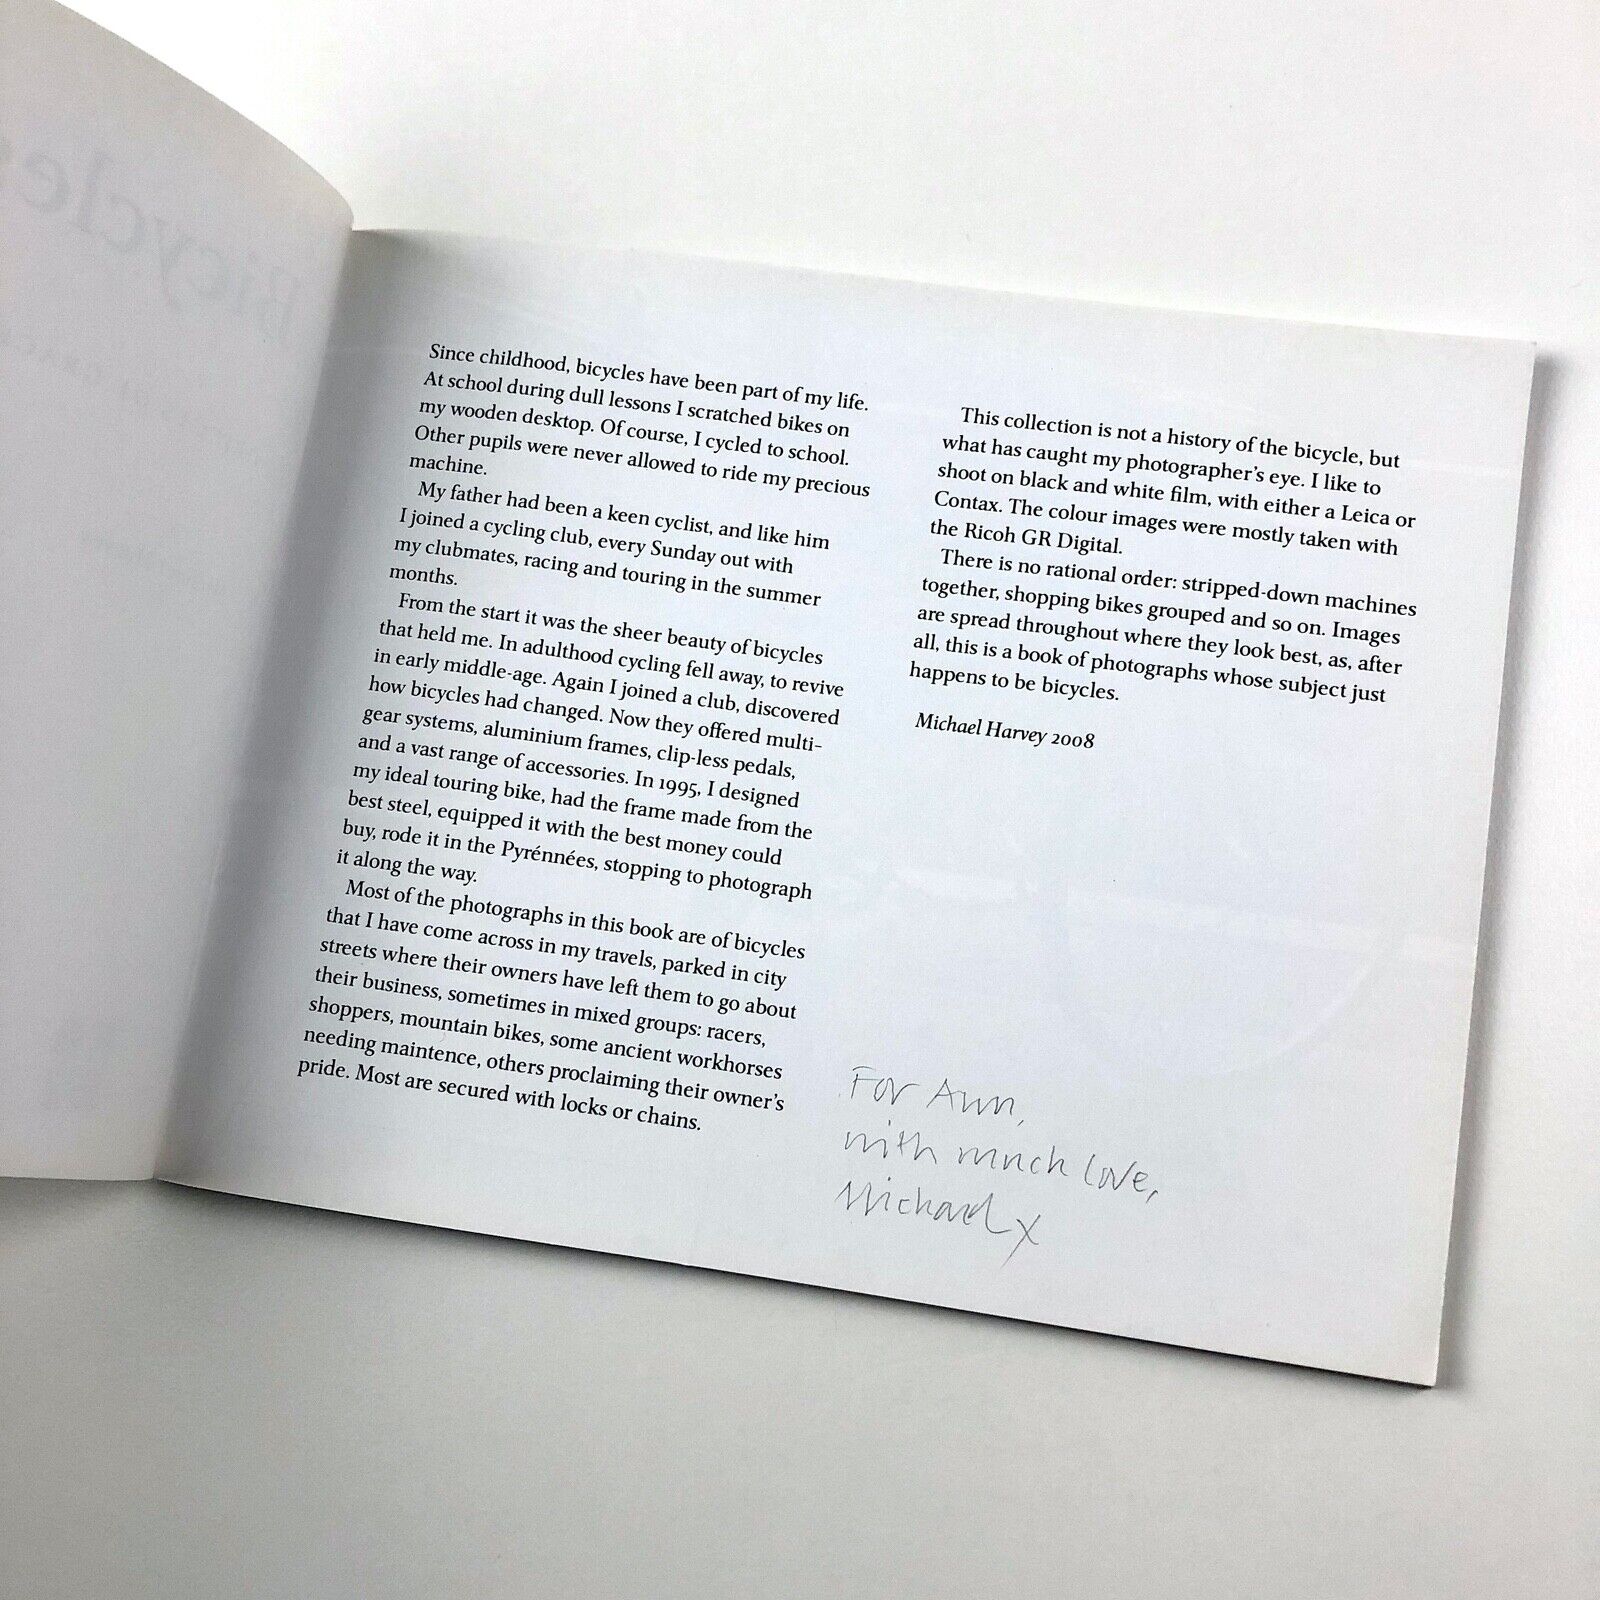 Bicycles
Since childhood, bicycles have been part of my life.
At school during dull lessons I scratched bikes on
my wooden desktop. Of course, I cycled to school.
Other pupils were never allowed to ride my precious
machine.
My father had been a keen cyclist, and like him
I joined a cycling club, every Sunday out with
my clubmates, racing and touring in the summer
months.
From the start it was the sheer beauty of bicycles
that held me. In adulthood cycling fell away, to revive
in early middle-age. Again I joined a club, discovered
how bicycles had changed. Now they offered multi-
gear systems, aluminium frames, clip-less pedals,
and a vast range of accessories. In 1995, I designed
my ideal touring bike, had the frame made from the
best steel, equipped it with the best money could
buy, rode it in the Pyrénnées, stopping to photograph
it along the way.
Most of the photographs in this book are of bicycles
that I have come across in my travels, parked in city
streets where their owners have left them to go about
their business, sometimes in mixed groups: racers,
shoppers, mountain bikes, some ancient workhorses
needing maintence, others proclaiming their owner's
pride. Most are secured with locks or chains.
This collection is not a history of the bicycle, but
what has caught my photographer's eye. I like to
shoot on black and white film, with either a Leica or
Contax. The colour images were mostly taken with
the Ricoh GR Digital.
There is no rational order: stripped-down machines
together, shopping bikes grouped and so on. Images
are spread throughout where they look best, as, after
all, this is a book of photographs whose subject just
happens to be bicycles.
Michael Harvey 2008
For Ann,
with much love,
Michael x